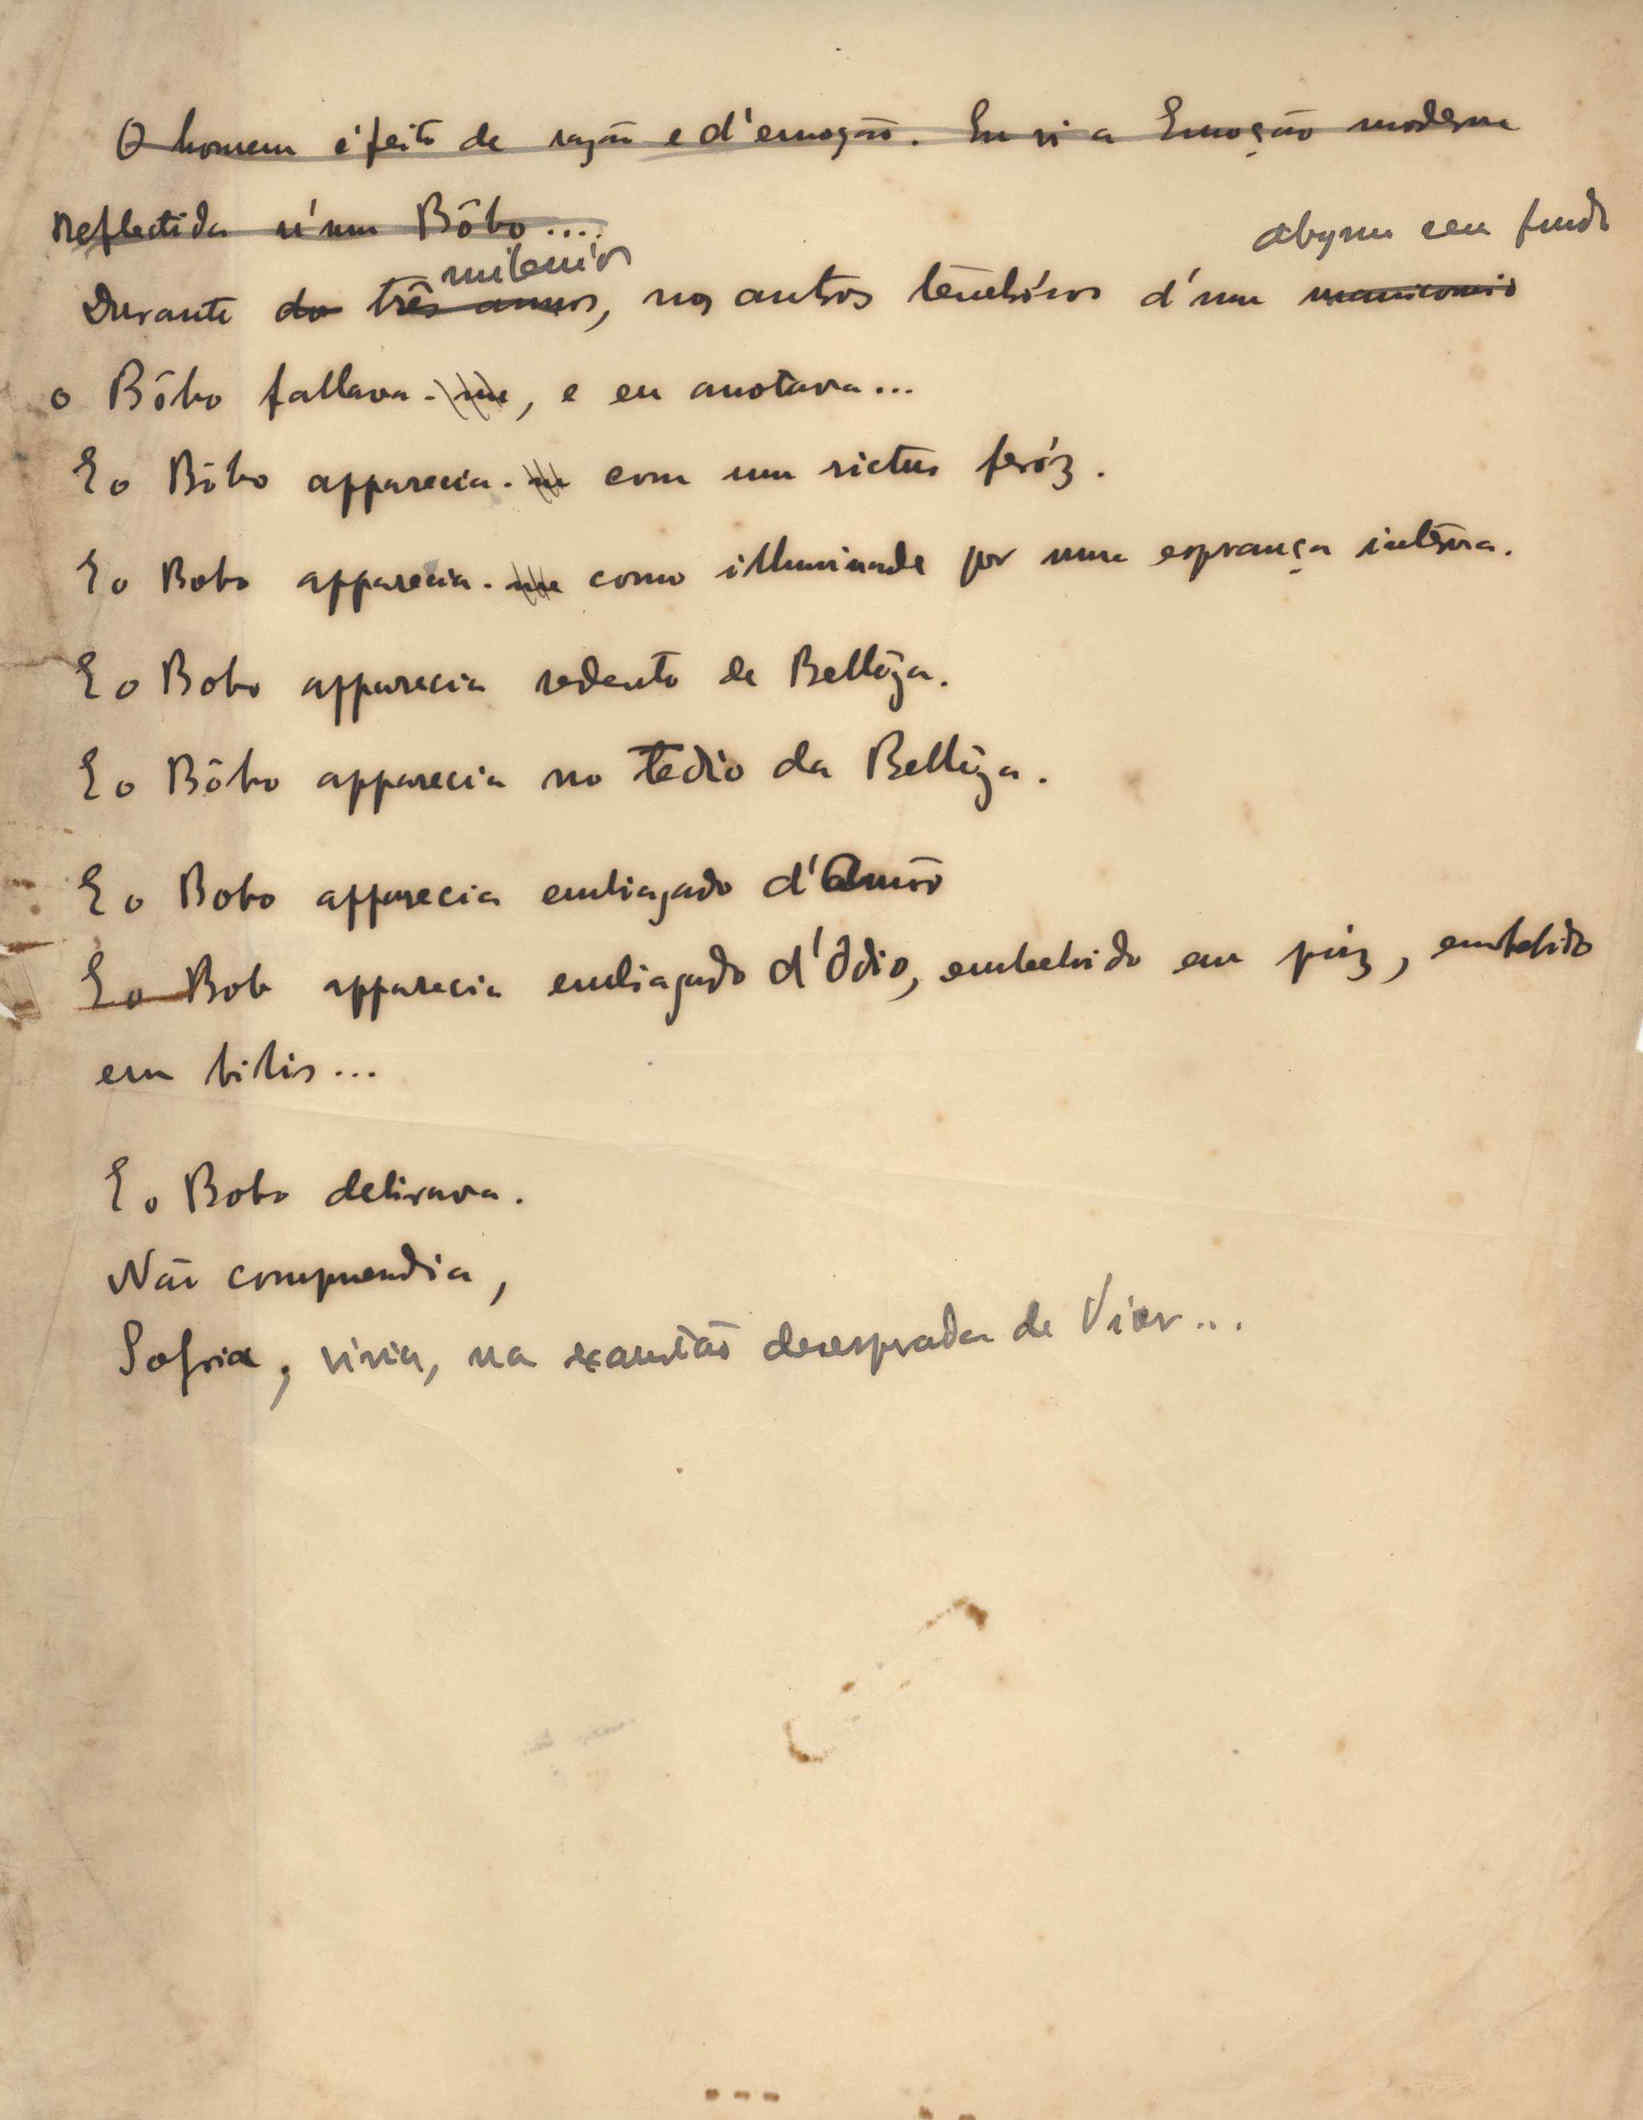 O homem é feito de razão e d'emoção. Eu vi a Emoção moderna
Reflectida n'um Bôbo....
milenios
abysmo sem fundo
Durante do três annos, nos antros tenebrósos d'um manicomio
o Bôbo fallava-me, e eu anotava...
E o Bôbo apparecia-me com um rictus feróz.
E o Bobo apparecia-me como illuminado por uma esprança interna.
E o Bobo apparecia sedento de Bellêza.
E o Bôbo apparecia no tedio da Bellêza.
E o Bobo apparecia embiagado d'Amôr
E o Bobo apparecia embiagado d'Odio, embebido em pús, embebido
em bilis...
E o Bobo delirava.
Não comprendia,
Sofria, vivia, na exaustão desesprada de Viver...